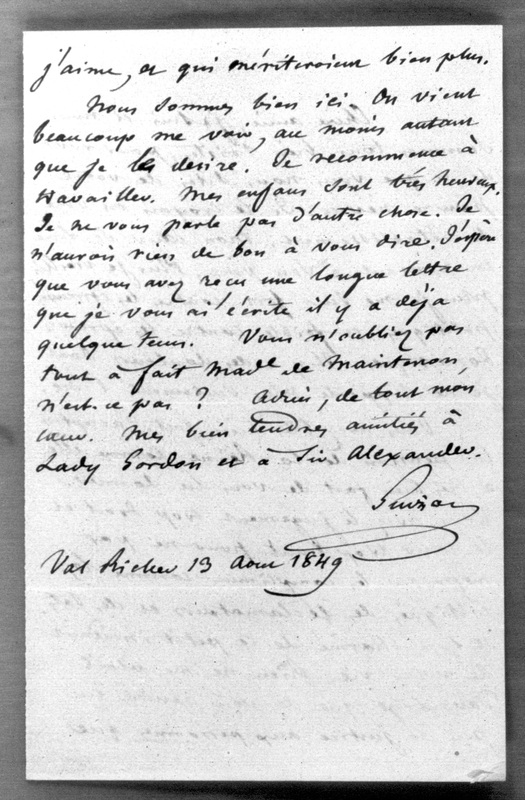 j'aime, et qui mériteroient bien plus.
Nous sommes bien ici. On vient
beaucoup me voir, au moins autant
que je le desire. Je recommence à
travailler. Mes enfans sont très heureux.
Je ne vous parle pas d'autre chose. Je
n'aurois rien de bon à vous dire. J'espère
que vous avez reçu une longue lettre
que je vous ai écrite il y a déjà
quelque tems. Vous n'oubliez pas
tout à fait Mad.e de Maintenon,
n'est-ce pas? Adieu, de tout mon
cœur. Mes bien tendres amitiés à
Lady Gordon et à Sir Alexander.
Guizot
Val Richer 13 Aout 1849